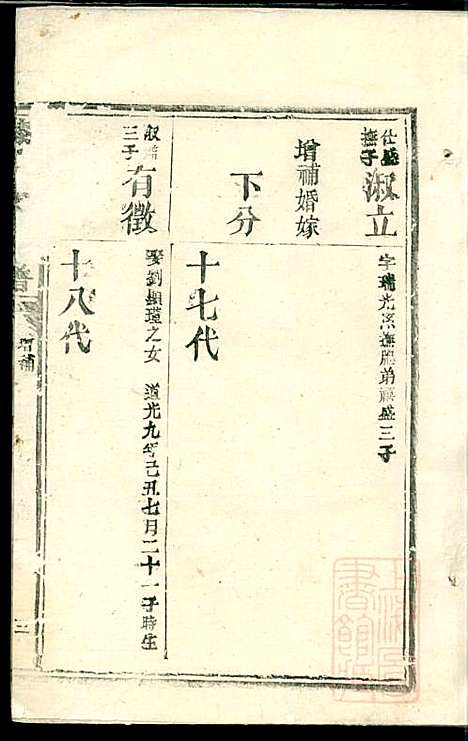 仕盛
撫子
淑立
字瑞光系撫胞弟禧盛三子
增補婚嫁
下分
十七代
三子
有徵
娶劉顯瑾之女 道光九年己丑七月二十一子時生
十八代
譜
增補
二